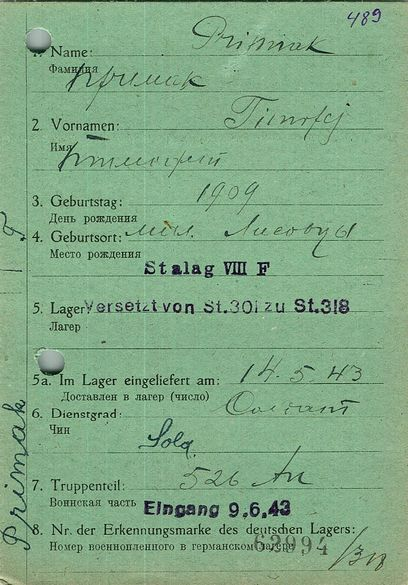 489
1. Name: Primak
Фамилия
Примак
2. Vornamen: Timofej
Имя
Тимофей
3. Geburtstag: 1909
День рождения
4. Geburtsort: Лисовцы
Место рождения
Stalag VIII F
5. Lager Versetzt von St.301 zu St.318
Лагерь
5a. Im Lager eingeliefert am: 14.5.43
Доставлен в лагерь (число)
6. Dienstgrad: Солдат
Чин
Sold.
7. Truppenteil: 526
Воинская часть Eingang 9.6.43
8. Nr. der Erkennungsmarke des deutschen Lagers:
Номер военнопленного в германском лагере
63994
/318
Primak